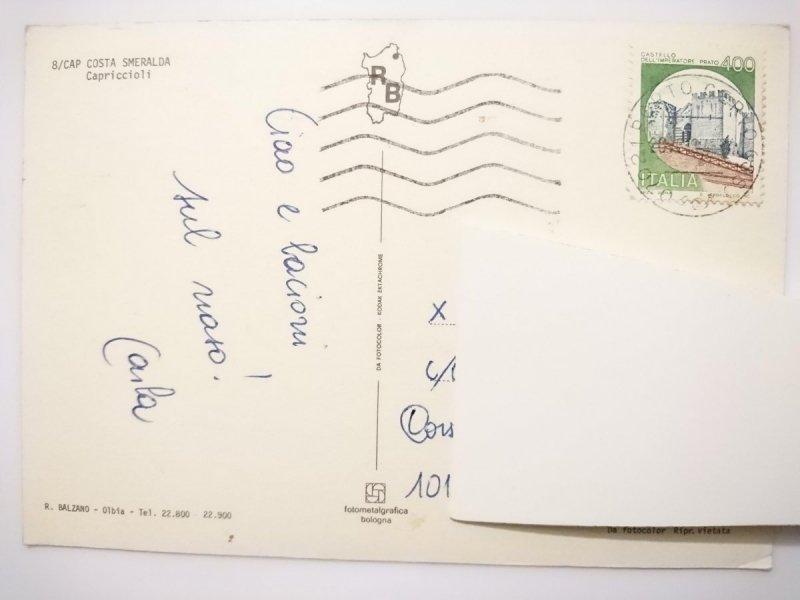 8/CAP COSTA SMERALDA
Capriccioli
RB
CASTELLO
DELL'IMPERATORE PRATO 400
ITALIA
PORTO CERVO
Ciao e bacioni
sul naso!
Carla
DA FOTOCOLOR - KODAK EKTACHROME
X
c/
Cors
101
R. BALZANO - Olbia - Tel. 22.800 - 22.900
fotometalgrafica
bologna
Da fotocolor Ripr. Vietata